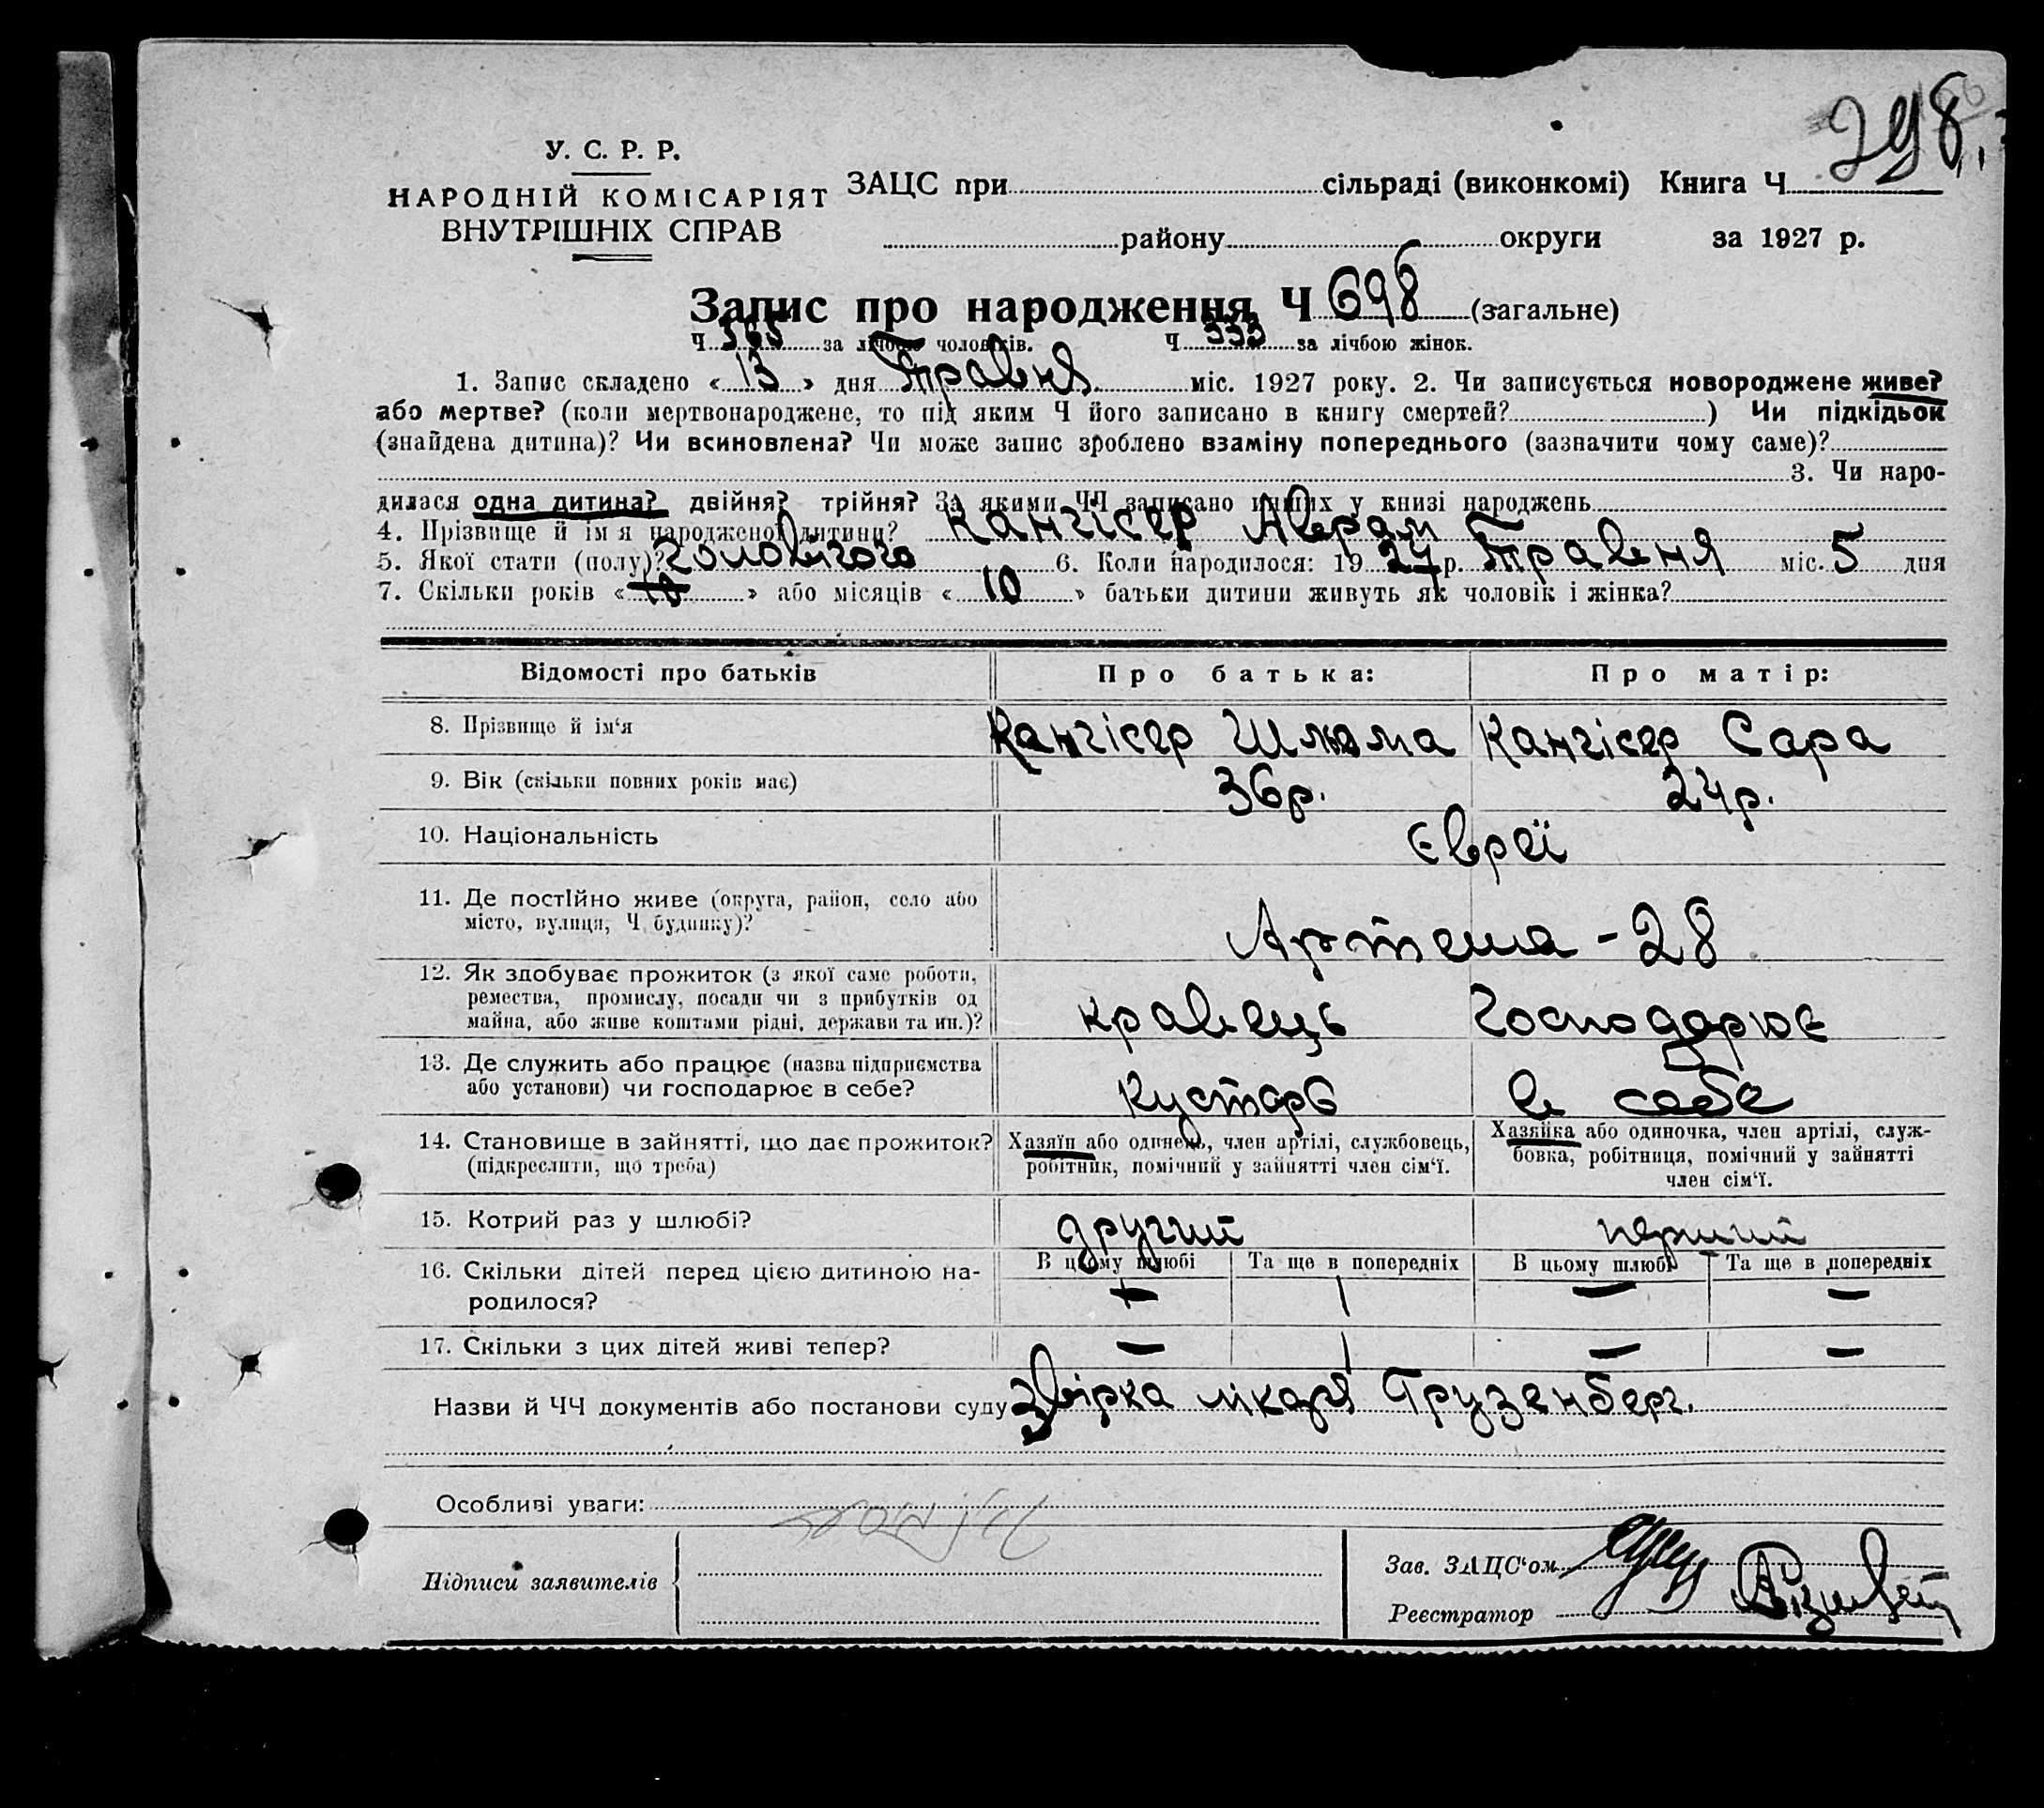 298
У. С. Р. Р.
НАРОДНІЙ КОМІСАРІЯТ
ВНУТРІШНІХ СПРАВ
ЗАЦС при сільраді (виконкомі) Книга Ч
району округи за 1927 р.
Запис про народження Ч 698 (загальне)
Ч 365 за лічбою чоловіків. Ч 333 за лічбою жінок.
1. Запис складено « 13 » дня Травня міс. 1927 року. 2. Чи записується новороджене живе?
або мертве? (коли мертвонароджене, то під яким Ч його записано в книгу смертей? ) Чи підкідьок
(знайдена дитина)? Чи всиновлена? Чи може запис зроблено взаміну попереднього (зазначити чому саме)?
3. Чи наро-
дилася одна дитина? двійня? трійня? За якими ЧЧ записано инших у книзі народжень
4. Прізвище й ім'я народженої дитини? Кангісер Аврам
5. Якої стати (полу)? Чоловічого 6. Коли народилося: 1927 р. Травня міс. 5 дня
7. Скільки років « 10 » або місяців « 10 » батьки дитини живуть як чоловік і жінка?
Відомості про батьків Про батька: Про матір:
8. Прізвище й ім'я Кангісер Шлема Кангісер Сара
9. Вік (скільки повних років має) 36р. 24р.
10. Національність Євреї
11. Де постійно живе (округа, район, село або
місто, вулиця, Ч будинку)? Артема - 28
12. Як здобуває прожиток (з якої саме роботи,
ремества, промислу, посади чи з прибутків од
майна, або живе коштами рідні, держави та ин.)? кравець Господарює
13. Де служить або працює (назва підприємства
або установи) чи господарює в себе? Кустарь в себе
14. Становище в зайнятті, що дає прожиток? Хазяїн або одинець, член артілі, службовець, Хазяйка або одиночка, член артілі, служ-
(підкреслити, що треба) робітник, помічний у зайнятті член сім'ї. бовка, робітниця, помічний у зайнятті
член сім'ї.
15. Котрий раз у шлюбі? другий перший
В цьому шлюбі Та ще в попередніх В цьому шлюбі Та ще в попередніх
16. Скільки дітей перед цією дитиною на-
родилося? — 1 — —
17. Скільки з цих дітей живі тепер? — 1 — —
Назви й ЧЧ документів або постанови суду Звірка лікаря Грузенберг.
Особливі уваги:
Підписи заявителів
Зав. ЗАЦС'ом
Реєстратор